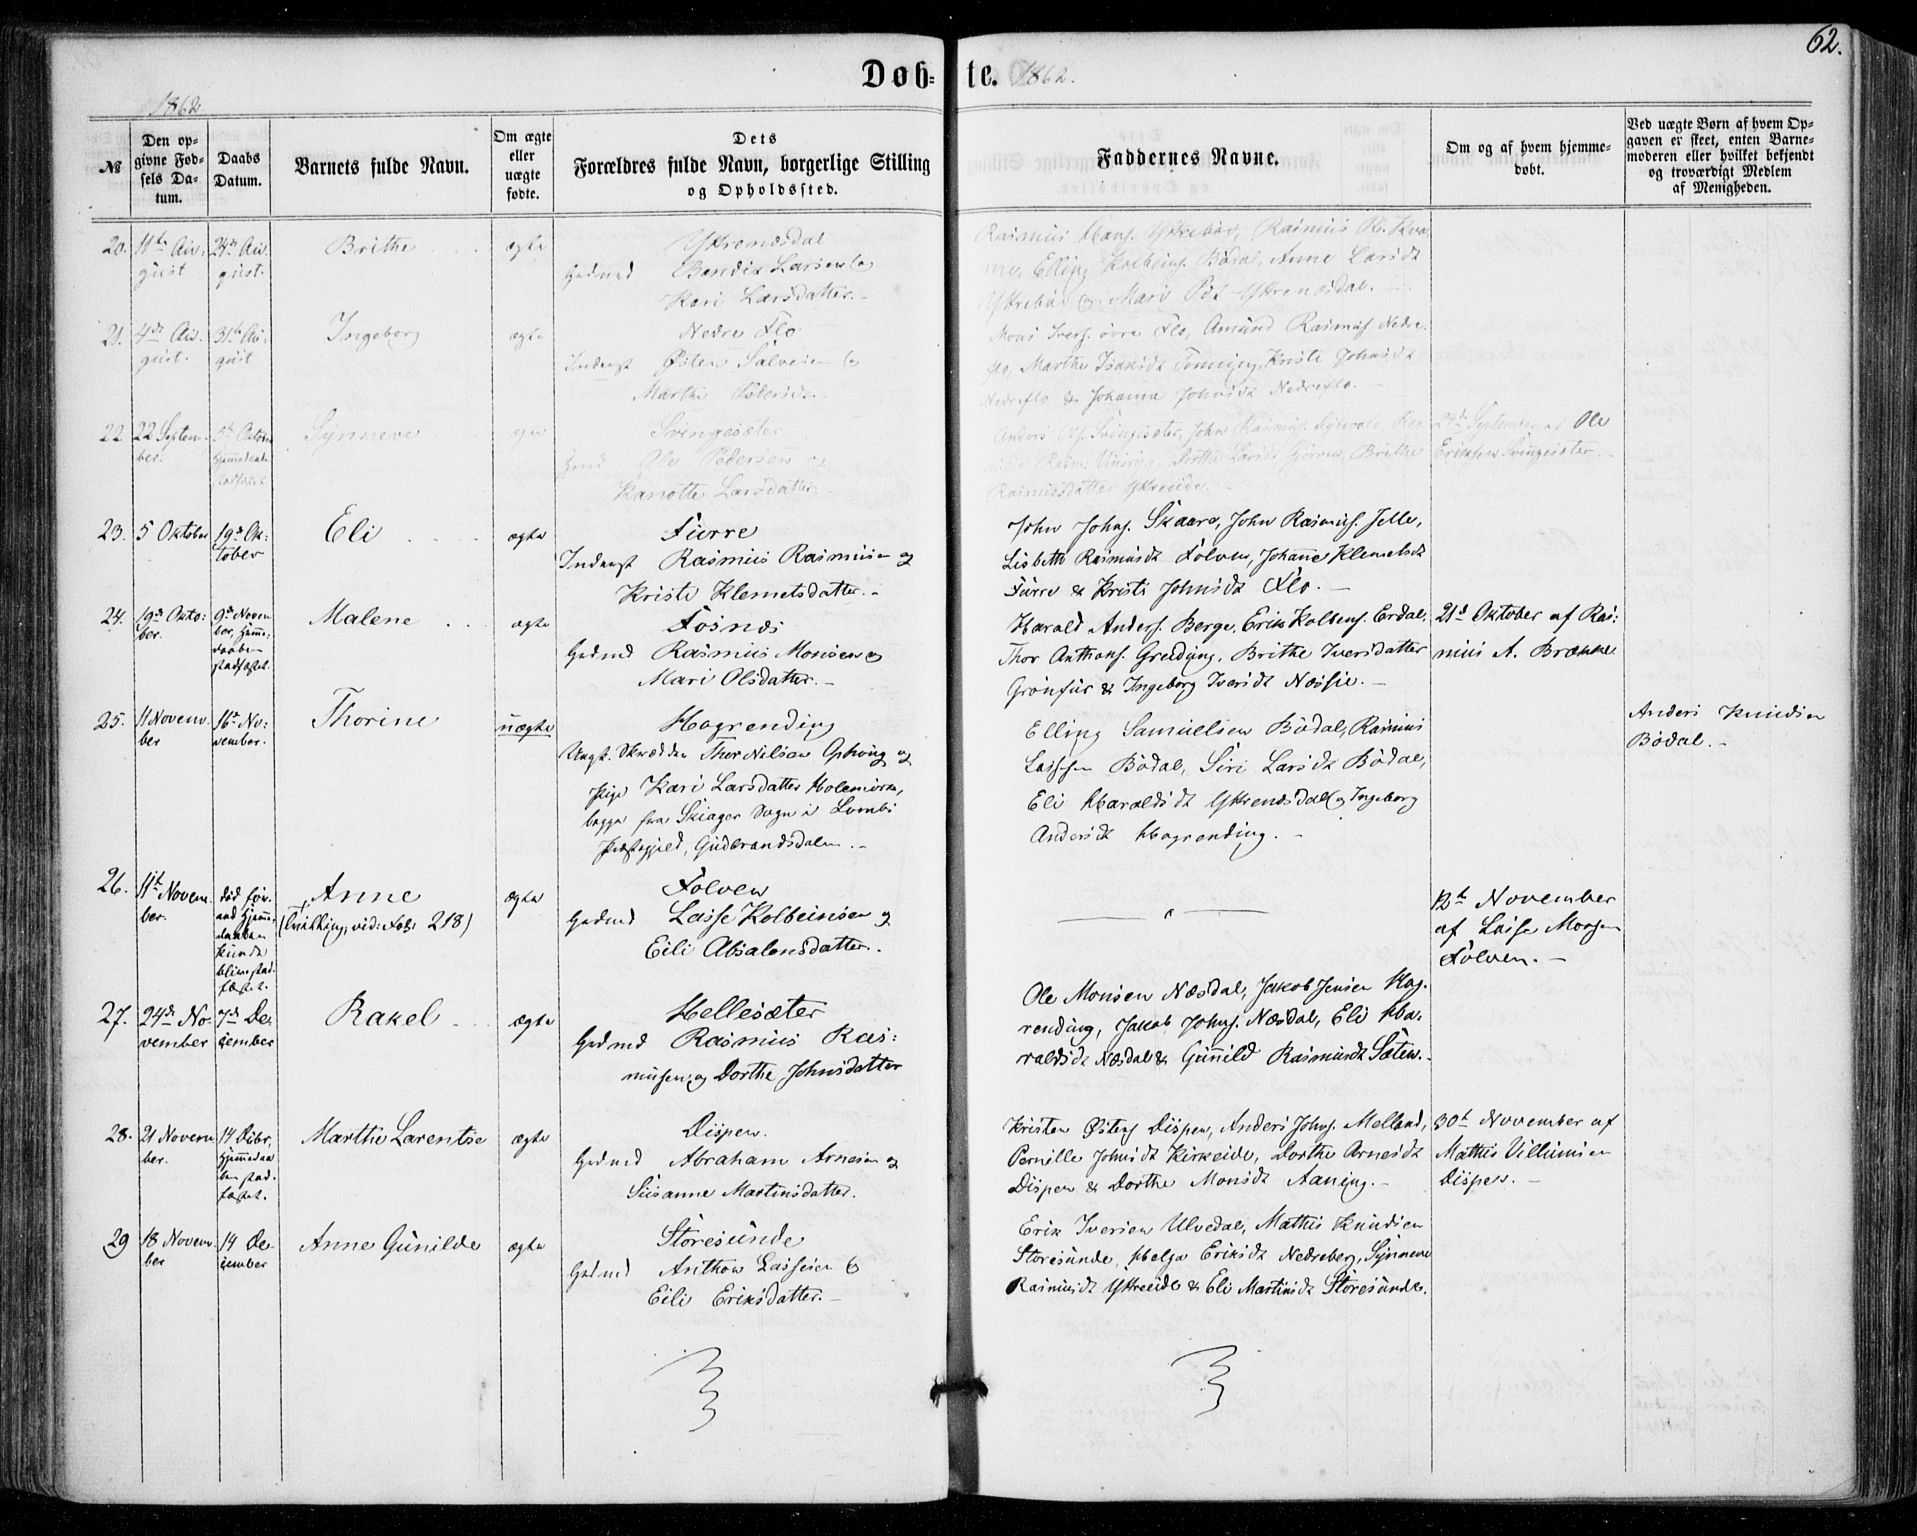 62.
Døb- te. 1862.
1862
№
Den op-
givne Fød-
sels Da-
tum.
Daabs
Datum.
Barnets fulde Navn.
Om ægte
eller
uægte
fødte.
Dets
Forældres fulde Navn, borgerlige Stilling
og Opholdssted.
Faddernes Navne.
Om og af hvem hjemme-
døbt.
Ved uægte Børn af hvem Op-
gaven er skeet, enten Barne-
moderen eller hvilket bekjendt
og troværdigt Medlem
af Menigheden.
20.
11te Au-
gust
24de Au-
gust.
Brithe
ægte
Yttrenæsdal
Gdmd Bendix Larsen &
Kari Larsdatter.-
Rasmus Hans. Yttrebøe, Rasmus R. Kva-
me, Elling Kolbeins. Bödal, Anne Larsdt
Yttrebøe og Mari Pdt Yttrenæsdal.
21.
4de Au-
gust.
31te Au-
gust
Ingeborg
ægte
Nedre Flo
Inderst Østen Salvesen &
Marthe Pedersdr
Mons Ivers. övre Flo, Amund Rasmus. Nedre-
flo, Marthe Isaksdt Tonning, Kristi Johnsdt
Nedreflo & Johanne Johnsdt Nedreflo.-
22
22 Septem-
ber.
5te October
hjemmedaab
stadfæstet
Synneve
ægte
Svingesæter
Gmd Ole Pedersen og
Kanotte Larsdatter.
Anders Ols. Svingesæter, John Rasmus.
Rasmusdatter Yttreeide.-
24de September af Ole
Eriksen Svingesæter.
23.
5 Oktober
19de Ok-
tober
Eli
ægte
Furre
Inderst Rasmus Rasmusen og
Kristi Klemetsdatter.-
John Johns. Skaare, John Rasmus. Jelle,
Lisbeth Rasmusdt Folven, Johanne Klemetsdt
Furre & Kristi Johnsdt Flo.-
24.
19de Okto-
ber.
9de Novem-
ber, hjemme-
daaben
stadfæstet.
Malene
ægte
Fosnæs
Gdmd Rasmus Monsen og
Mari Olsdatter.-
Harald Anders. Berge, Erik Kolbens. Erdal,
Thor Anthons. Greiding, Brithe Iversdatter
Grönfur & Ingeborg Iversdt Næssie.-
21de Oktober af Ras-
mus A. Brække
25.
11 Novem-
ber
16de No-
vember.
Thorine
uægte
Hogrending
Ungk. Skrædder Thor Nilsen Ophoug og
Pige Kari Larsdatter Holemörk,
begge fra Skiager Sogn i Lombs
Præstegjeld, Gudbrandsdalen.-
Elling Samuelsen Bödal, Rasmus
Lassesen Bödal, Siri Larsdt Bödal,
Eli Haraldsdt Yttrenæsdal og Ingeborg
Andersdt Hogrending.-
Anders Knudsen
Bödal.-
26.
11te Novem-
ber.
död för-
end hjemme-
daaben
kunde
blive stad-
fæstet.
Anne
(tvilling, vid: Fol: 218)
ægte
Folven
Gdmd Lasse Kolbeinsen og
Eili Absalonsdatter.
12te November
af Lasse Monsen
Folven.-
27.
24de No-
vember
7de De-
cember
Rakel
ægte
Hellesæter
Gdmd Rasmus Ras-
musen og Dorthe Johnsdatter
Ole Monsen Næsdal, Jakob Jensen Hog-
rending, Jakob Johns. Næsdal, Eli Ha-
raldsdt Næsdal & Gunnild Rasmusdt Sæten.-
28.
21 Novem-
ber.
14 Decbr,
hjemmedaa-
ben stad-
fæstet.
Marthe Larentse
ægte
Dispen.
Gdmd Abraham Arnesen og
Susanne Martinsdatter.
Kristen Østens. Dispen, Anders Johns. Melland,
Pernille Johnsdt Kirkeide, Dorthe Arnesdt
Dispen & Dorthe Monsdt Aaning.-
30te November af
Mathis Villumsen
Dispen.-
29
18 Novem-
ber
14 De-
cember
Anne Gunilde
ægte
Storesunde
Gdmd Anthon Lassesen &
Eili Eriksdatter.-
Erik Iversen Ulvedal, Mathis Knudsen
Storesunde, Helga Eriksdt Nedreberg, Synneve
Rasmusdt Yttreeide & Eli Martinsdt Storesunde.